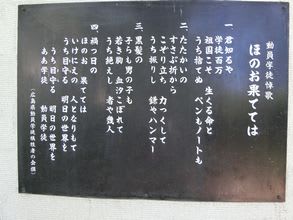 動員学徒悼歌
ほのお果てては
一 君知るや
学徒百万
祖国こそ 生くる命と
うち捨てぬ ペンもノートも
二 たたかいの
すさぶ折から
こぞり立ち 力つくして
うち振りし 鎌やハンマー
三 黒髪の
子らも男の子も
若き胸 血汐こぼれて
うち絶えし 者や幾人
四 禍つ日の
ほのお 果てては
いけにえの 人となりもて
うち日守る 明日の世界を
うち日守る 明日の世界を
ああ学徒 動員学徒
(広島県動員学徒犠牲者の会撰)